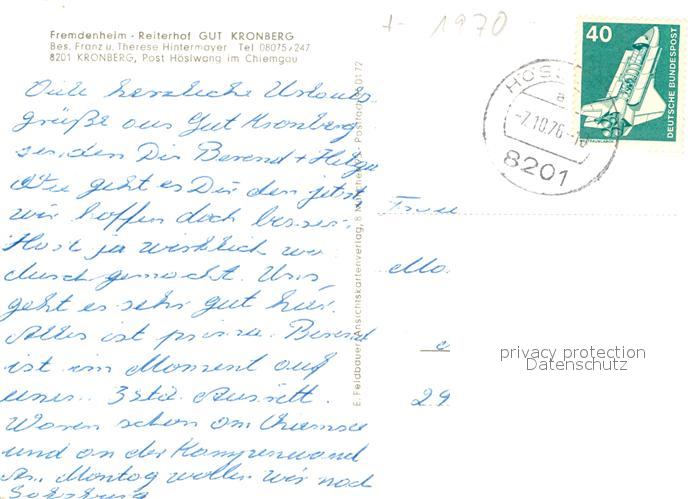 Fremdenheim - Reiterhof GUT KRONBERG
Bes. Franz u. Therese Hintermayer Tel 08075/247
8201 KRONBERG, Post Höslwang im Chiemgau
+- 1970
40
DEUTSCHE BUNDESPOST
-7.10.76-
8201
Viele herzliche Urlaubs-
grüße aus Gut Kronberg
senden Dir Berend + Helga
Wie geht es Dir denn jetzt
wir hoffen doch besser.
Hast ja wirklich was
durch gemacht. Uns
geht es sehr gut hier.
Alles ist prima. Berend
ist im Moment auf
einen 3 Std. Ausritt.
Waren schon am Chiemsee
und an der Kampenwand
Am Montag wollen wir nach
Salzburg
E. Feldbauer, Ansichtskartenverlag, 8 München
Frau
29
privacy protection
Datenschutz